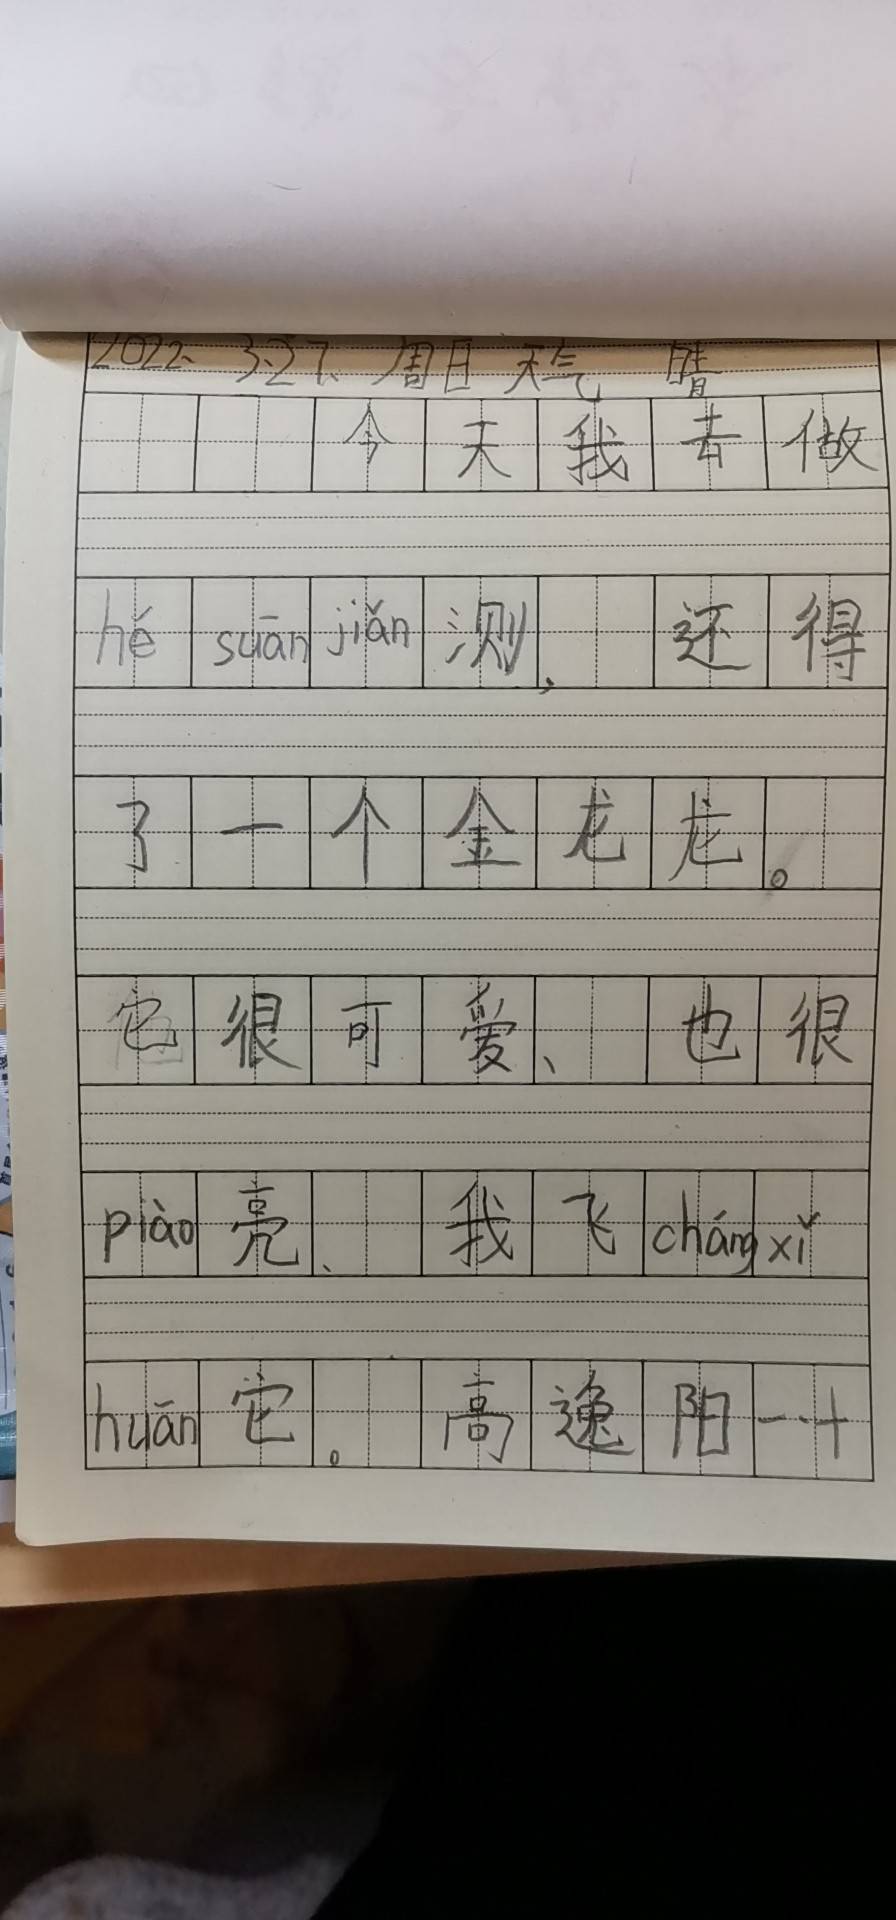 2022、3.27、周日 天气 晴
今天我去做
hé suān jiǎn 测、还得
了一个金龙龙。
它很可爱、也很
piào亮、我飞cháng xǐ
huān它。高逸阳一十